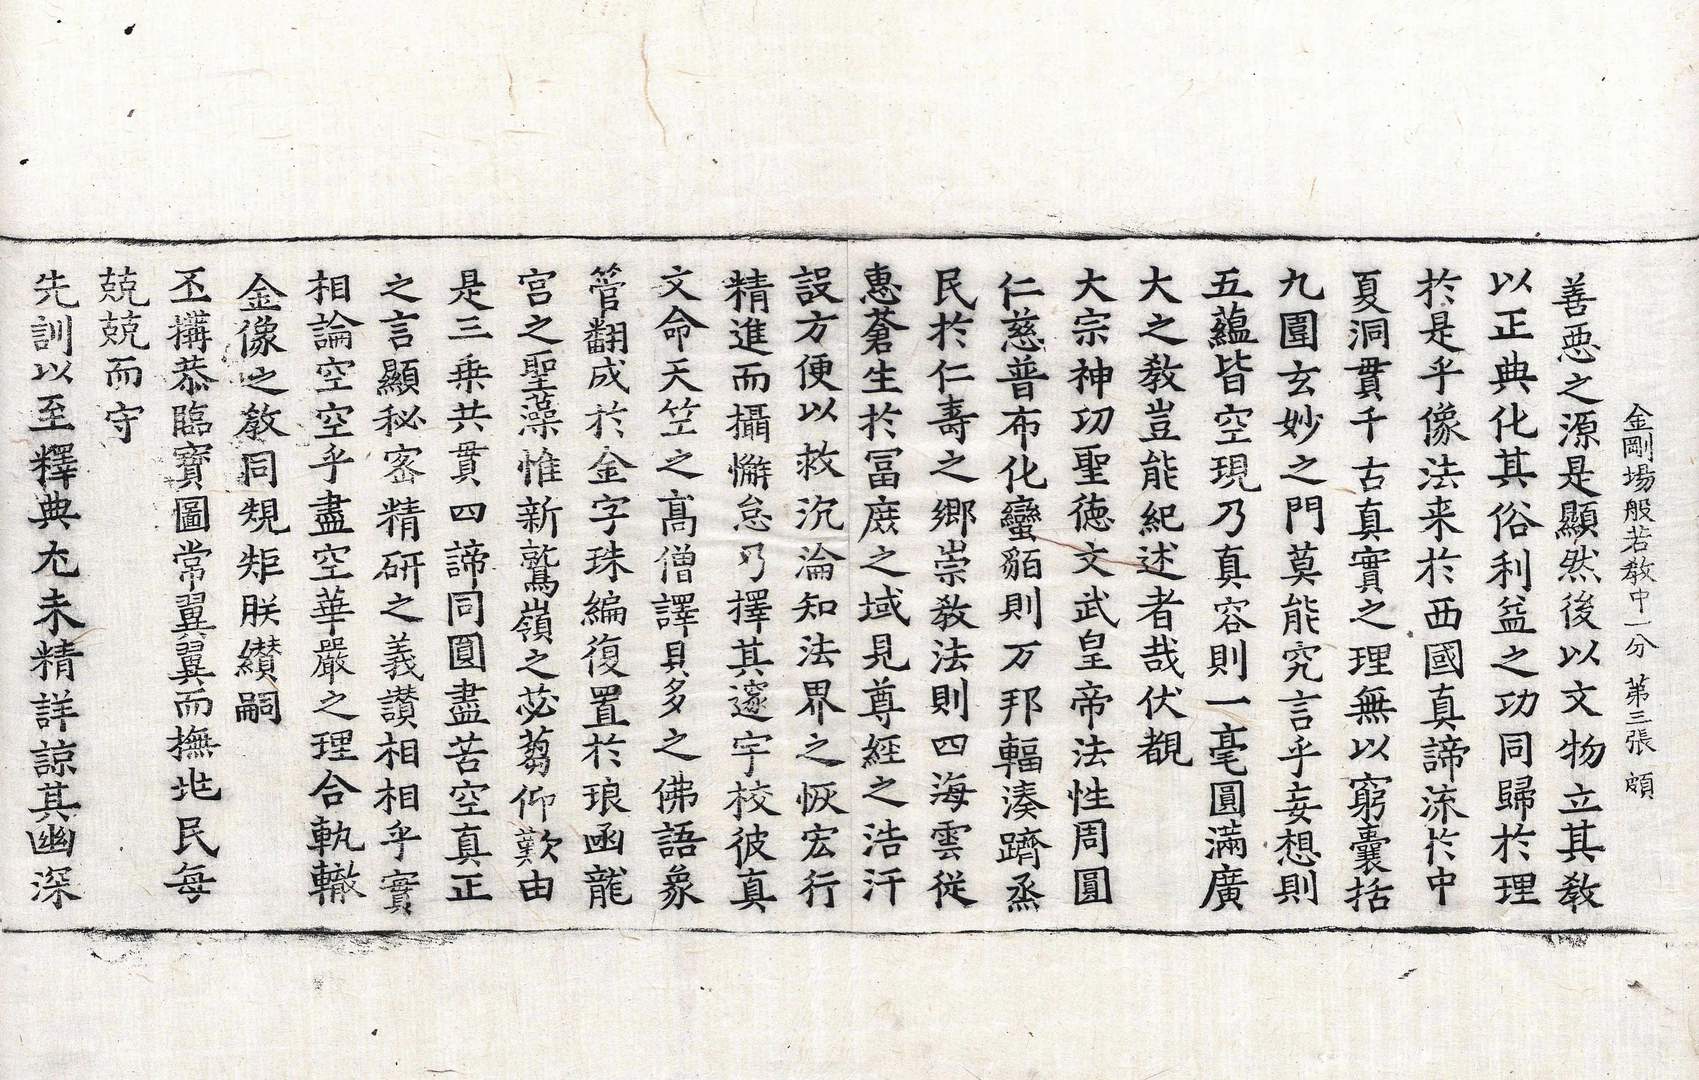 金剛場般若教中一分　第三張　頗
善惡之源是顯然後以文物立其教
以正典化其俗利益之功同歸於理
於是乎像法来於西國真諦流於中
夏洞貫千古真實之理無以窮囊括
九圍玄妙之門莫能究言乎妄想則
五蘊皆空現乃真容則一毫圓滿廣
大之教豈能紀述者哉伏覩
大宗神功聖德文武皇帝法性周圓
仁慈普布化蠻貊則万邦輻湊躋烝
民於仁壽之鄉崇教法則四海雲從
惠蒼生於冨庶之域見尊經之浩汗
設方便以救沉淪知法界之恢宏行
精進而攝懈怠乃擇其邃宇校彼真
文命天竺之高僧譯貝多之佛語象
管翻成於金字珠編復置於琅函龍
宮之聖藻惟新鷲嶺之苾蒭仰歎由
是三乘共貫四諦同圓盡苦空真正
之言顯秘密精研之義讚相相乎實
相論空空乎盡空華嚴之理合軌轍
金像之教同䂓矩朕纘嗣
丕搆恭臨寶圖常翼翼而撫兆民每
兢兢而守
先訓以至釋典尢未精詳諒其幽深